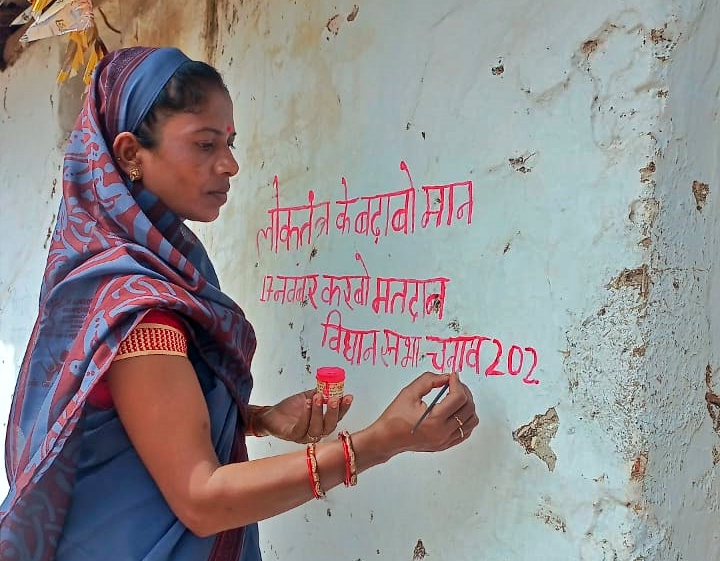 लोकतंत्र के बढ़ाबो मान
17 नवबर करबो मतदान
विधान सभा चुनाव 202